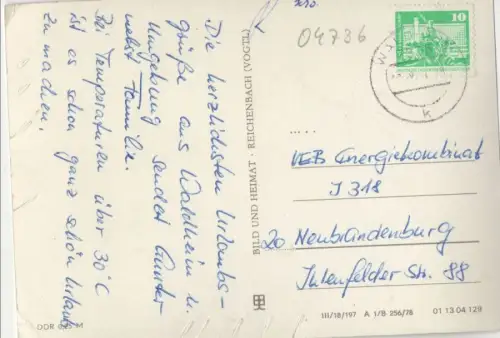 Die herzlichsten Urlaubs-
grüße aus Waldheim u.
Umgebung sendet Günter
nebst Familie.
Bei Temperaturen über 30°C
ist es schon ganz schön Urlaub
zu machen.
DDR M
BILD UND HEIMAT · REICHENBACH (VOGTL)
04736
10
k
VEB Energiekombinat
J 318
20 Neubrandenburg
Ihlenfelder Str. 88
III/18/197 A 1/B 256/78 01 13 04 129